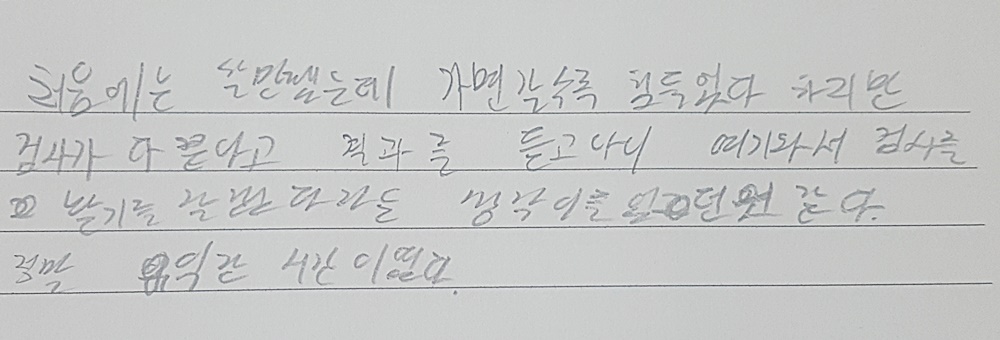 처음에는 할만했는데 가면갈수록 힘들었다 하지만
검사가 다 끝나고 결과를 듣고나니 여기와서 검사를
받기를 잘했다라는 생각이 들었던것 같다.
정말 유익한 시간이였다.